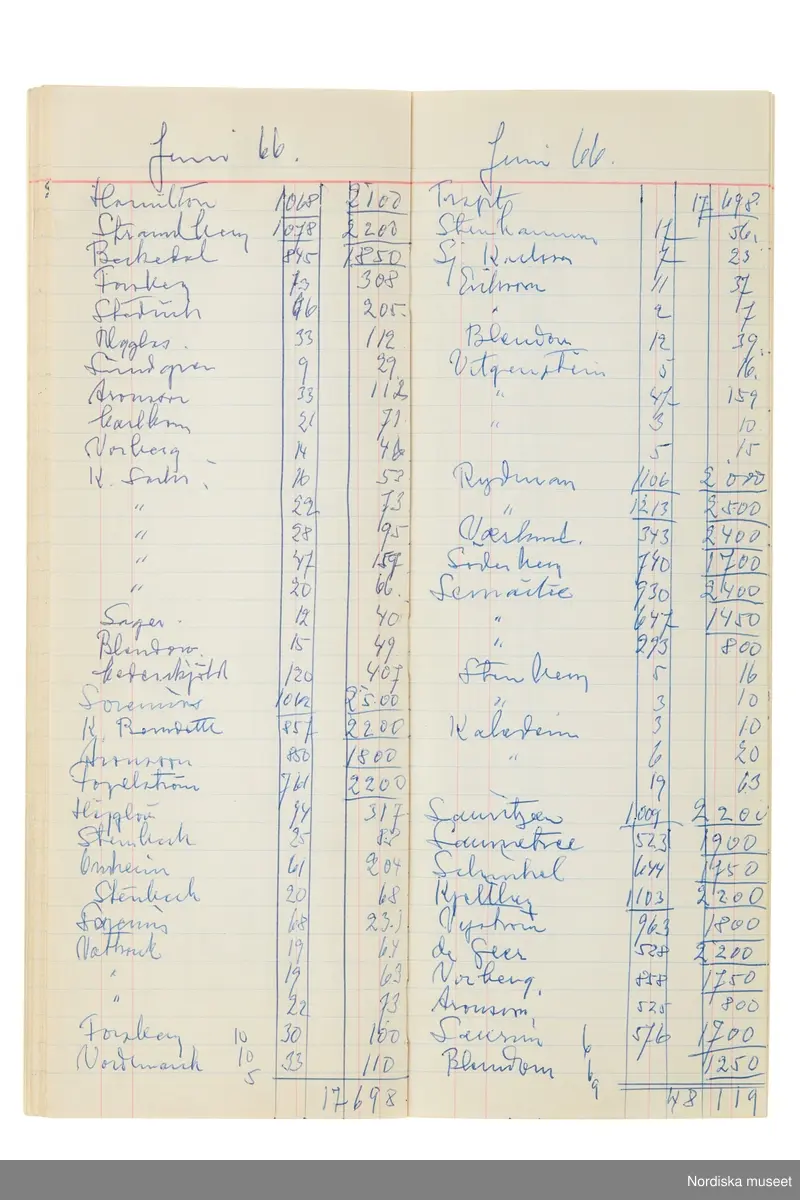 Juni 66.
Hamilton 1068 2100
Strandberg 1078 2200
845 1850
73 308
205.
33 112
Lundgren 9 29
Aronson 33 112
21 71
Norberg 14 46
K. 16 53
" 22 73
" 28 95
" 47 159
" 20 66.
Sager. 12 40
Blendow. 15 49
Cederskjöld 120 407
1062 2500
K. 857 2200
Aronson 850 1800
Fogelström 761 2200
Hägglöv 94 317
Stenbock 25
61 204
Stenbock 20 68
68
19 64
" 19 63
" 22 73
Forsberg 10 30 100
Nordmark 10 33 110
5
17698
Juni 66.
Trspt. 17 698.
Stenhammar 17 56.
Sj. Karlsson 7 23
Eriksson 11 37
" 2 7
Blendow 12 39
Vitgenstein 5 16.
" 47 159
" 3 10
5 15
Rydman 1106 2000
" 1213 2500
343 2400
Söderberg 740 1700
930 2400
" 647 1450
" 293 800
Stenberg 5 16
" 3 10
3 10
" 6 20
19 63
Lauritzen 1009 2200
523 1900
Schinkel 644 1750
Kjellberg 1103 2200
Nyström 963 1800
de Geer 528 2200
Norberg 858 1750
Aronson, 525 800
576 1700
Blendow 6 1250
6
9
48 119
Nordiska museet